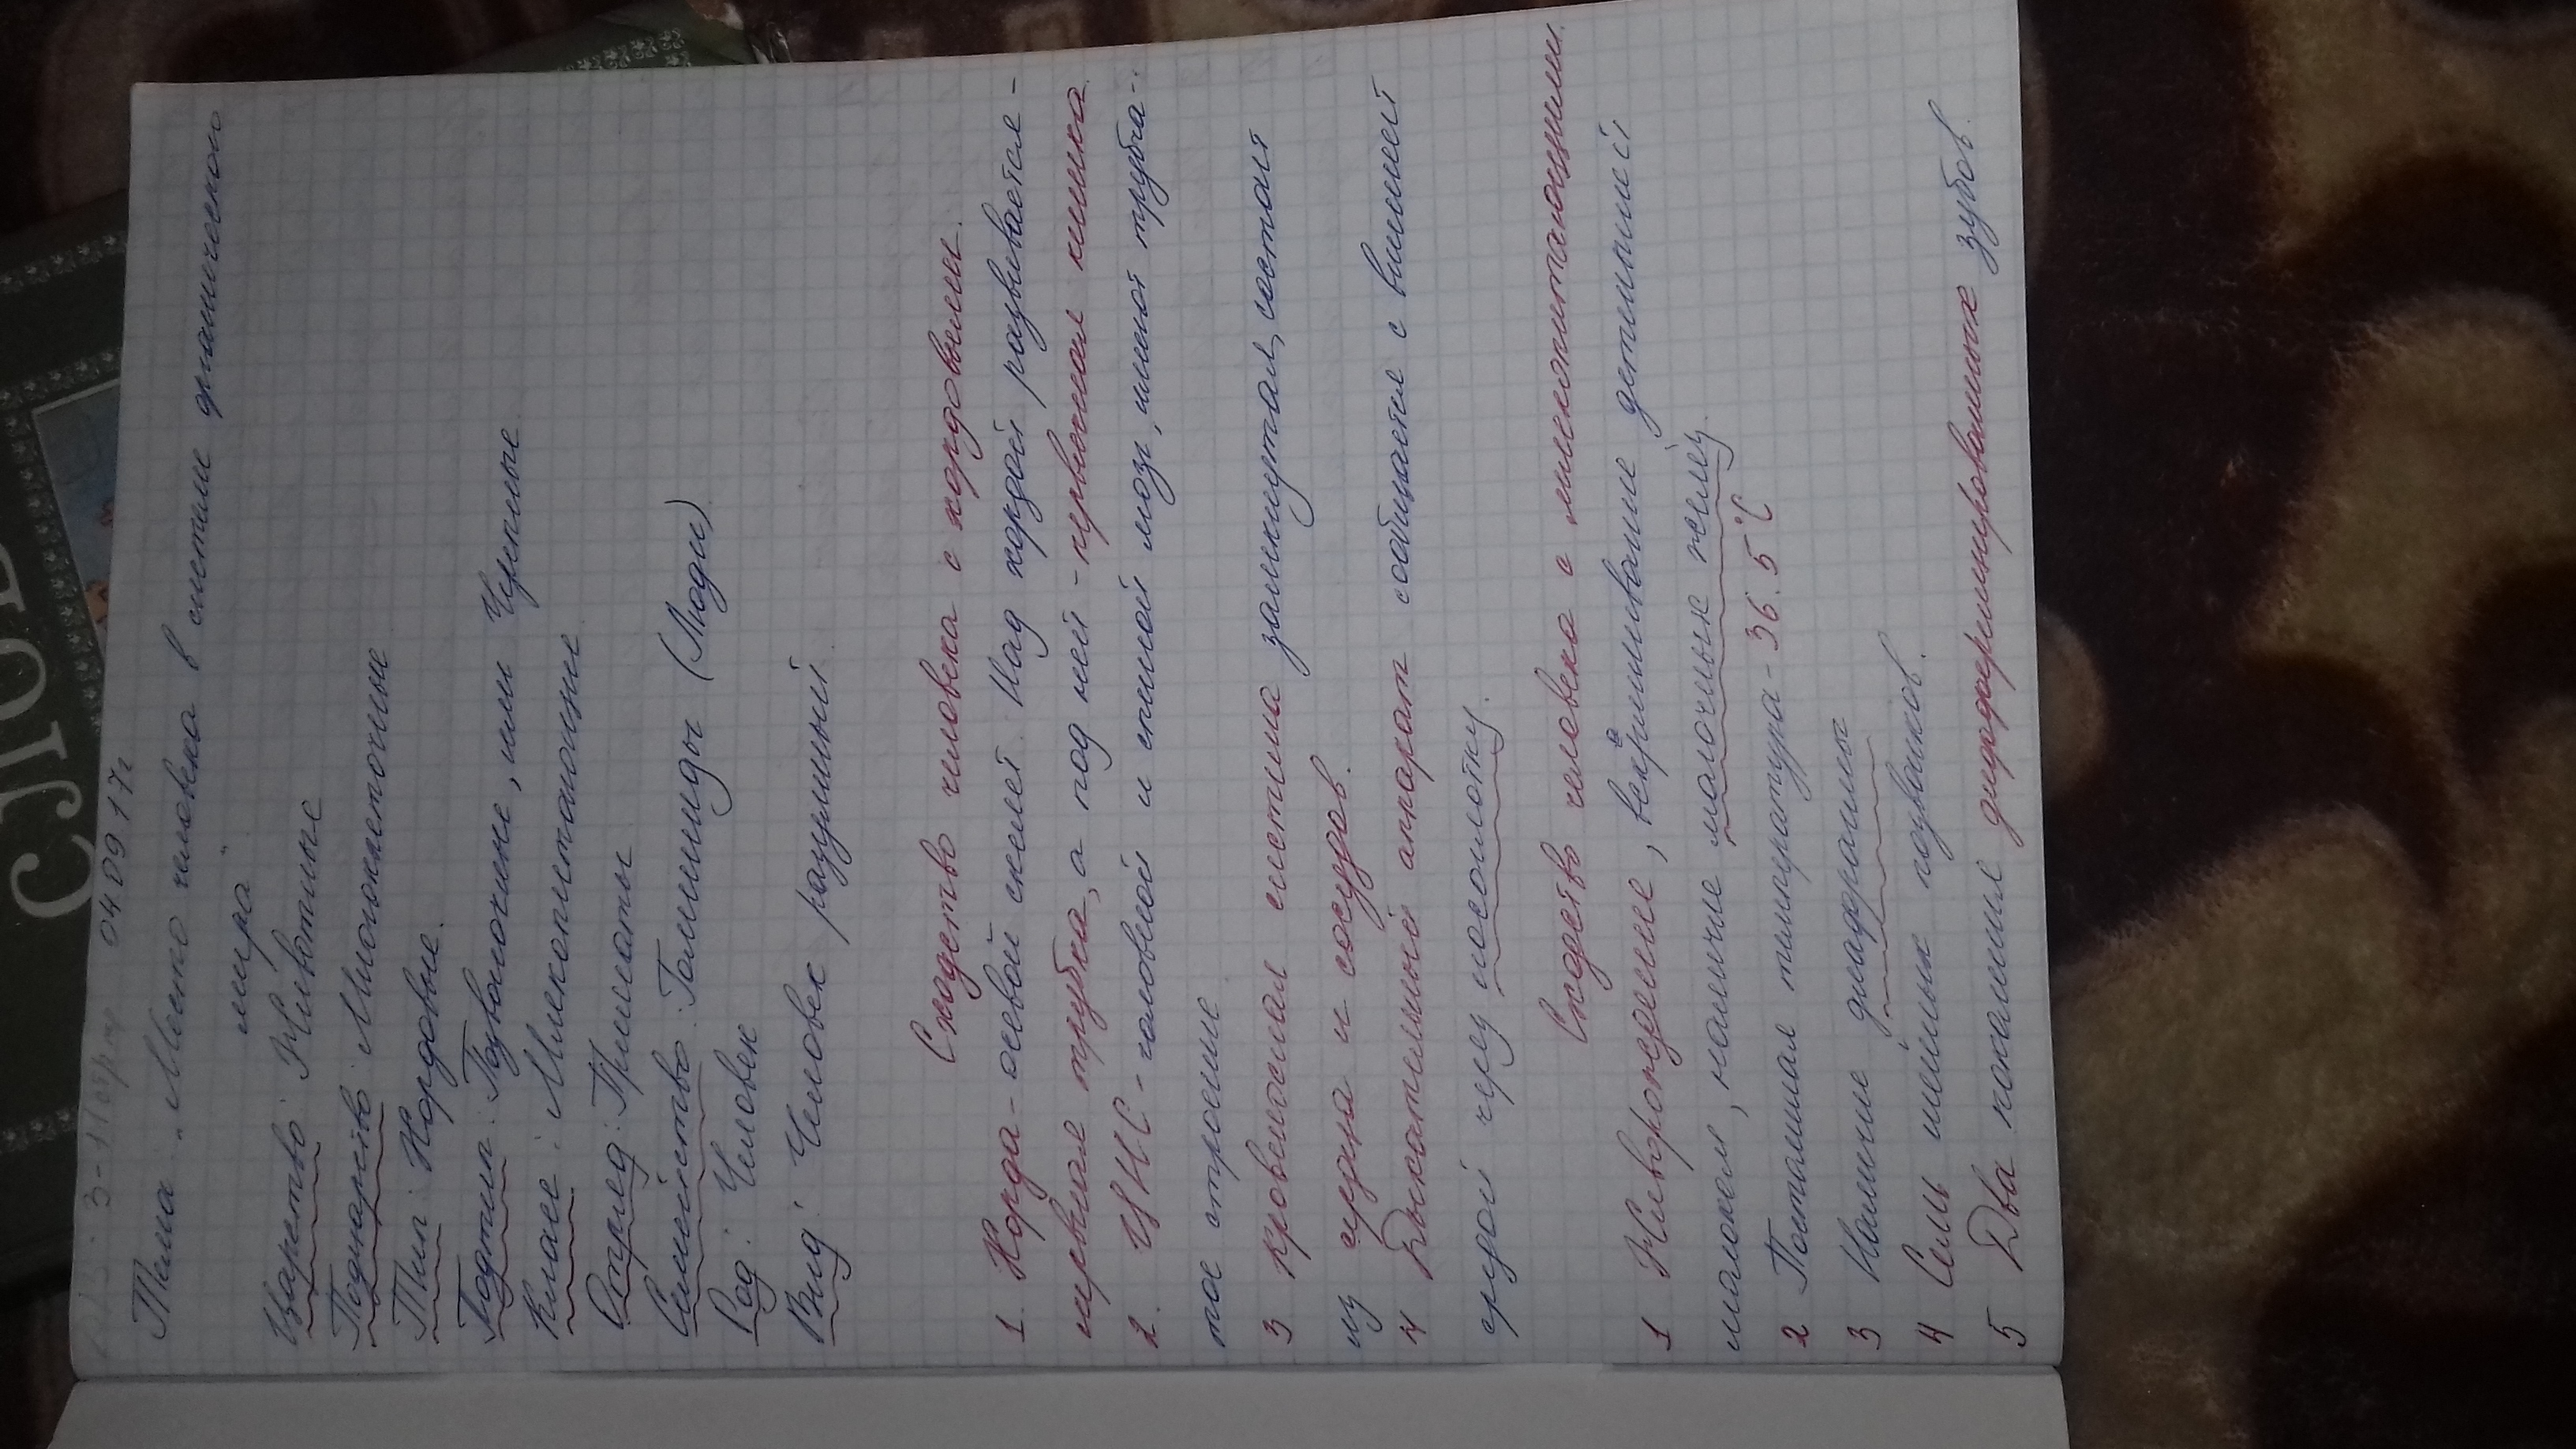 04 09 17г
Тема: „Место человека в системе органического
мира"
Царство: Животные
Подцарство: Многоклеточные
Тип: Хордовые.
Подтип: Позвоночные, или Черепные
Класс: Млекопитающие
Отряд: Приматы
Семейство: Гоминиды (Люди)
Род: Человек
Вид: Человек разумный.
Сходство человека с хордовыми.
1. Хорда - осевой скелет. Над хордой развивается -
нервная трубка, а под ней - первичная кишка.
2. ЦНС - головной и спиной мозг, имеют трубча-
тое строение
3 Кровеносная система замкнутая, состоит
из сердца и сосудов.
4 Дыхательный аппарат сообщается с внешней
средой через носоглотку.
Сходство человека с млекопитающими.
1 Живорождение, вскармливание детенышей
молоком, наличие молочных желёз.
2 Постоянная температура - 36.5°C
3 Наличие диафрагмы
4 Семь шейных позвонков.
5 Два поколения дифференцированных зубов.
СЛОВ